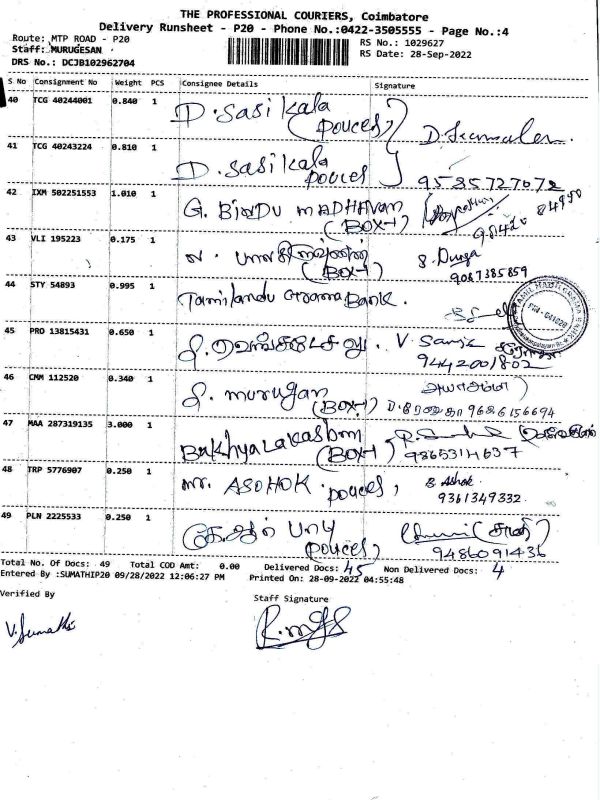 THE PROFESSIONAL COURIERS, Coimbatore
Delivery Runsheet - P20 - Phone No.:0422-3505555 - Page No.:4
Route: MTP ROAD - P20
RS No.: 1029627
Staff: MURUGESAN
RS Date: 28-Sep-2022
DRS No.: DCJB102962704
S No Consignment No Weight PCS Consignee Details Signature
40 TCG 40244001 0.840 1 D. Sasikala
(Pouces)
41 TCG 40243224 0.810 1 D. Sasikala
Pouces
9585727072
42 IXM 502251553 1.010 1 G. BINDU MADHAVAN
(BOX-1)
43 VLI 195223 0.175 1
(BOX-1)
S. Durga
9087385859
44 STY 54893 0.995 1 Tamilandu Grama Bank.
45 PRO 13815431 0.650 1
9442001802
46 CMM 112520 0.340 1 P. murugan
(BOX-1) 9686156694
47 MAA 287319135 3.000 1 Bakhyalakashmi
(BOX-1) 9865314637
48 TRP 5776907 0.250 1 Mr. ASOHOK. Pouces, S Ashok.
9361349332.
49 PLN 2225533 0.250 1 பாபு
(Pouces)
9486091436
Total No. Of Docs: 49 Total COD Amt: 0.00 Delivered Docs: 45 Non Delivered Docs: 4
Entered By :SUMATHIP20 09/28/2022 12:06:27 PM Printed On: 28-09-2022 04:55:48
Verified By Staff Signature
V. Sumathi